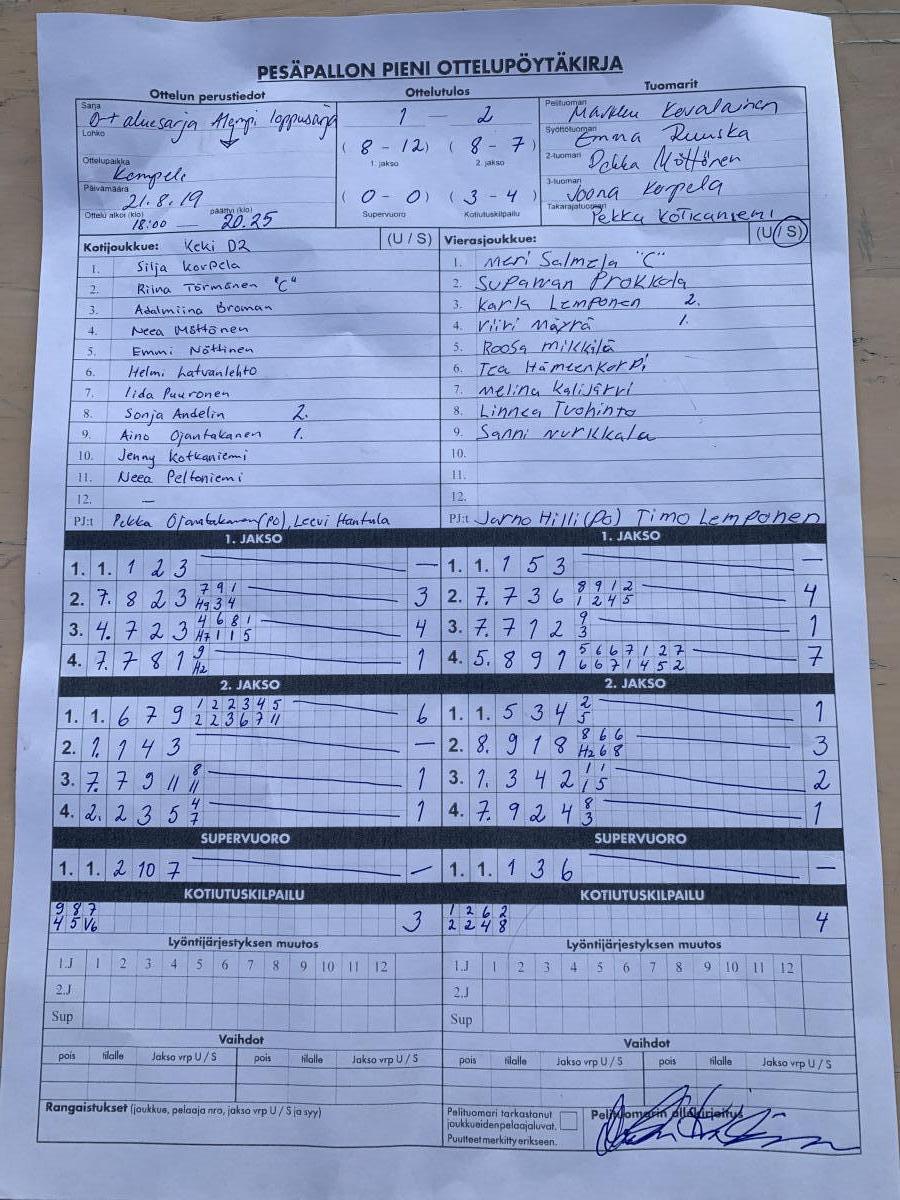 PESÄPALLON PIENI OTTELUPÖYTÄKIRJA
Ottelun perustiedot Ottelutulos Tuomarit
Sarja D++ aluesarja Alempi loppusarja
Lohko
Ottelupaikka Kempele
Päivämäärä 21.8.19
Ottelu alkoi (klo) 18:00 — päättyi (klo) 20.25
1 — 2
(8 - 12) (8 - 7)
1. jakso 2. jakso
(0 - 0) (3 - 4)
Supervuoro Kotiutuskilpailu
Pelituomari Markku Kovalainen
Syöttötuomari Emma Ruuska
2-tuomari Pekka Möttönen
3-tuomari Joona Korpela
Takarajatuomari Pekka Kotkaniemi
Kotijoukkue: KeKi D2 (U / S)
1. Silja Korpela
2. Riina Törmänen "C"
3. Adalmiina Broman
4. Neea Möttönen
5. Emmi Nöttinen
6. Helmi Latvanlehto
7. Iida Puuronen
8. Sonja Andelin 2.
9. Aino Ojantakanen 1.
10. Jenny Kotkaniemi
11. Neea Peltoniemi
12. —
PJ:t Pekka Ojantakanen (PO), Leevi Hantula
Vierasjoukkue: (U / S)
1. Meri Salmela "C"
2. Supawan Prokkola
3. Karla Lemponen 2.
4. Viivi Mäyrä 1.
5. Roosa Mikkilä
6. Tea Hämeenkorpi
7. Melina Kalijärvi
8. Linnea Tuohinto
9. Sanni Nurkkala
10.
11.
12.
PJ:t Jarno Hilli (PO) Timo Lemponen
1. JAKSO
1. 1. 1 2 3 —
2. 7. 8 2 3 7 9 1 3
H9 3 4
3. 4. 7 2 3 4 6 8 1 4
H7 1 1 5
4. 7. 7 8 1 9 1
H2
1. JAKSO
1. 1. 1 5 3 —
2. 7. 7 3 6 8 9 1 2 4
1 2 4 5
3. 7. 7 1 2 9 1
3
4. 5. 8 9 1 5 6 6 7 1 2 7 7
6 6 7 1 4 5 2
2. JAKSO
1. 1. 6 7 9 1 2 2 3 4 5 6
2 2 3 6 7 11
2. 1. 1 4 3 —
3. 7. 7 9 11 8 1
11
4. 2. 2 3 5 4 1
7
2. JAKSO
1. 1. 5 3 4 2 1
5
2. 8. 9 1 8 8 6 6 3
H2 6 8
3. 1. 3 4 2 1 1 2
1 5
4. 7. 9 2 4 8 1
3
SUPERVUORO
1. 1. 2 10 7 —
SUPERVUORO
1. 1. 1 3 6 —
KOTIUTUSKILPAILU
9 8 7 3
4 5 V6
KOTIUTUSKILPAILU
1 2 6 2 4
2 2 4 8
Lyöntijärjestyksen muutos
1.J 1 2 3 4 5 6 7 8 9 10 11 12
2.J
Sup
Lyöntijärjestyksen muutos
1.J 1 2 3 4 5 6 7 8 9 10 11 12
2.J
Sup
Vaihdot
pois tilalle Jakso vrp U / S pois tilalle Jakso vrp U / S
Vaihdot
pois tilalle Jakso vrp U / S pois tilalle Jakso vrp U / S
Rangaistukset (joukkue, pelaaja nro, jakso vrp U / S ja syy)
Pelituomari tarkastanut
joukkueiden pelaajaluvat.
Puutteet merkitty erikseen.
Pelituomarin allekirjoitus